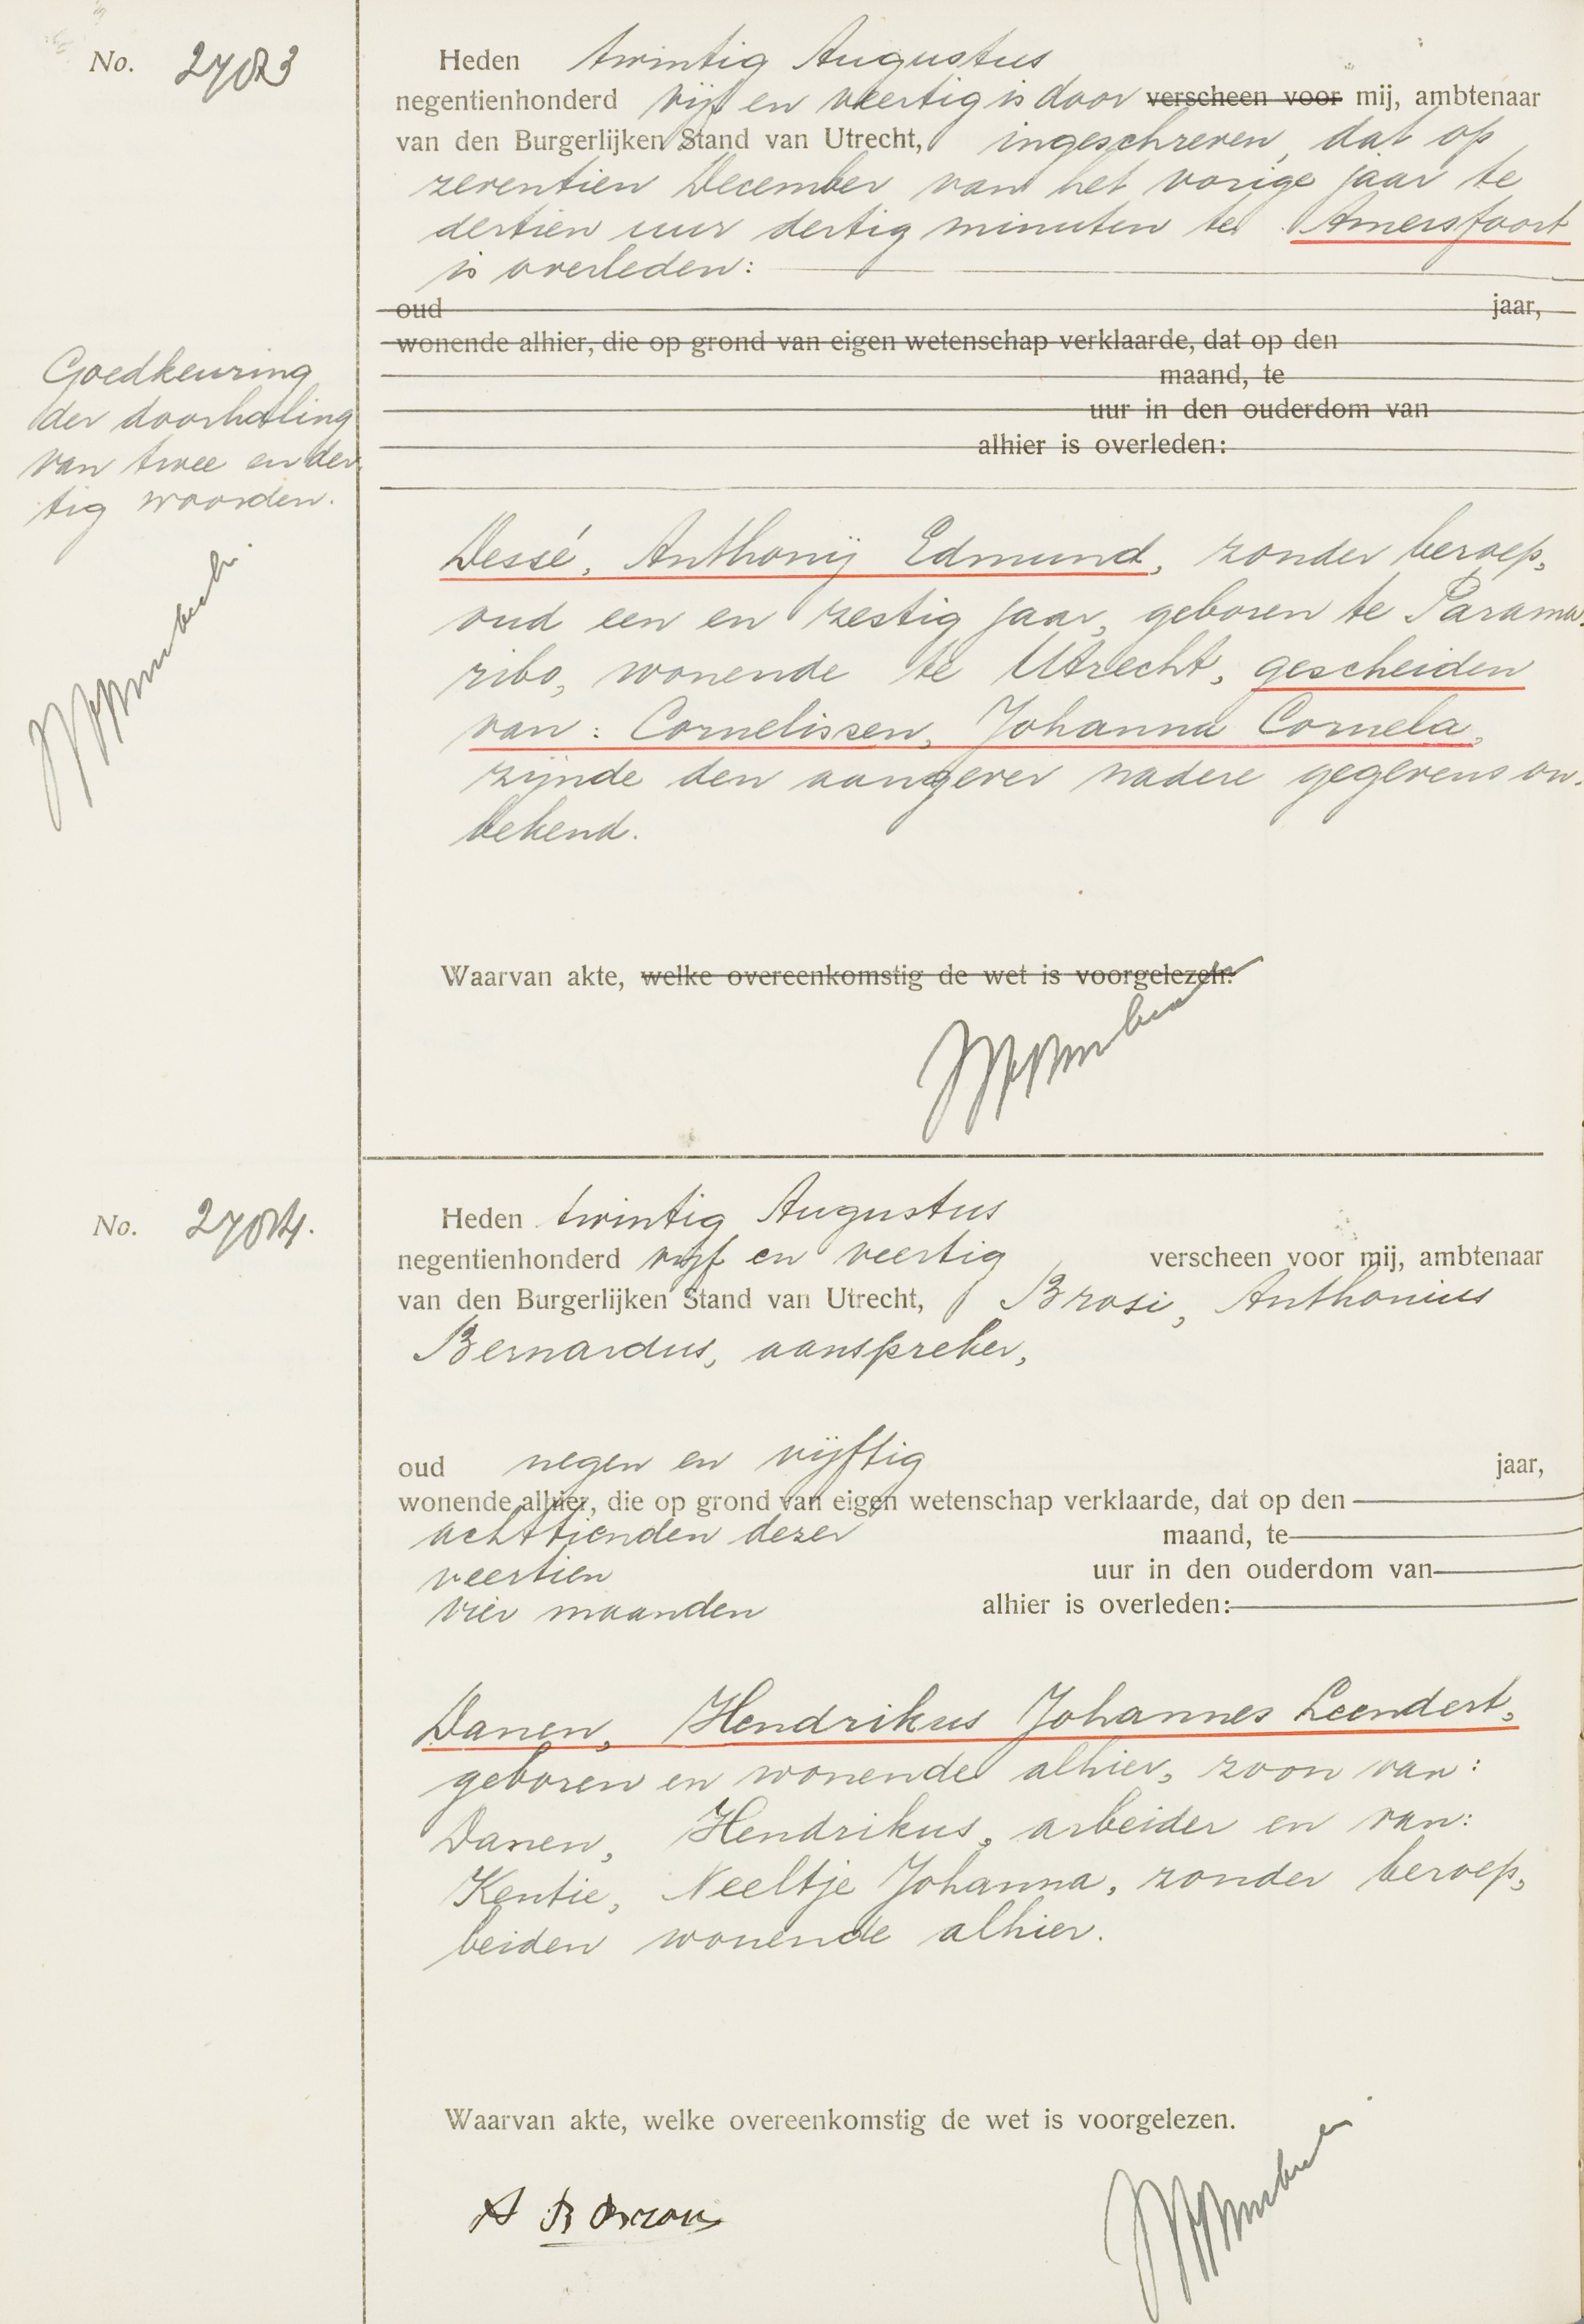 No. 2703
Heden twintig Augustus
negentienhonderd vijf en veertig is door verscheen voor mij, ambtenaar
van den Burgerlijken Stand van Utrecht, ingeschreven, dat op
zeventien December van het vorige jaar te
dertien uur dertig minuten te Amersfoort
is overleden:
oud jaar,
wonende alhier, die op grond van eigen wetenschap verklaarde, dat op den
maand, te
uur in den ouderdom van
alhier is overleden:
Goedkeuring
der doorhaling
van twee en der
tig woorden.
Dessé, Anthonij Edmund, zonder beroep,
oud een en zestig jaar, geboren te Parama-
ribo, wonende te Utrecht, gescheiden
van: Cornelissen, Johanna Cornela,
zijnde den aangever nadere gegevens on-
bekend.
Waarvan akte, welke overeenkomstig de wet is voorgelezen.
No. 2704.
Heden twintig Augustus
negentienhonderd vijf en veertig verscheen voor mij, ambtenaar
van den Burgerlijken Stand van Utrecht, Brosi, Anthonius
Bernardus, aanspreker,
oud negen en vijftig jaar,
wonende alhier, die op grond van eigen wetenschap verklaarde, dat op den
achttienden dezer maand, te
veertien uur in den ouderdom van
vier maanden alhier is overleden:
Danen, Hendrikus Johannes Leendert,
geboren en wonende alhier, zoon van:
Danen, Hendrikus, arbeider en van:
Kentie, Neeltje Johanna, zonder beroep,
beiden wonende alhier.
Waarvan akte, welke overeenkomstig de wet is voorgelezen.
A B